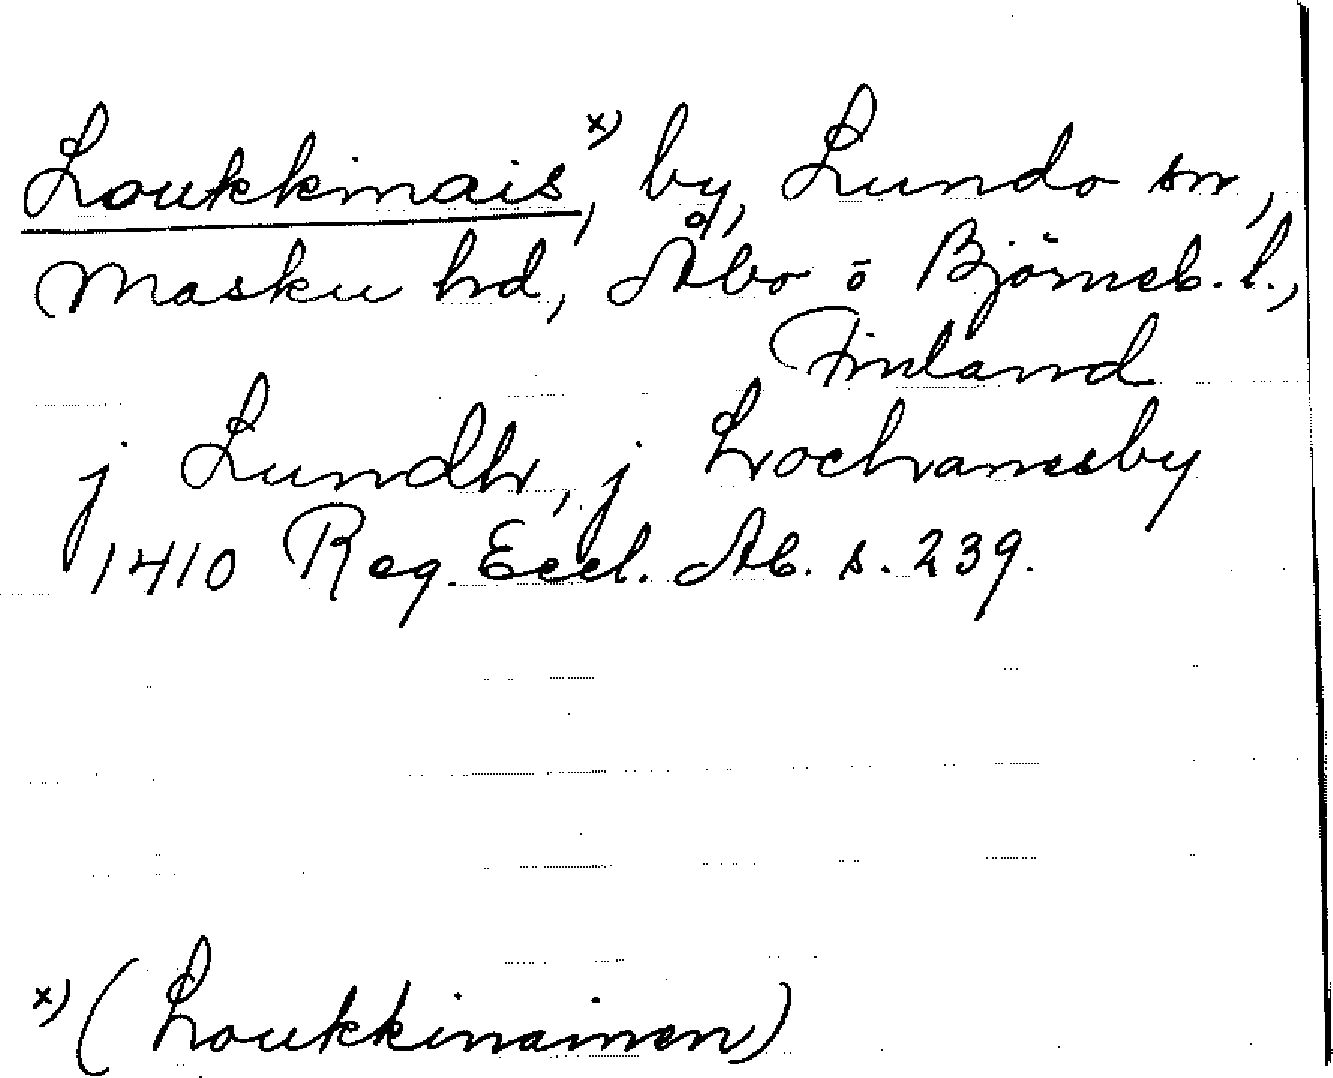 Loukkinais,ˣ⁾ by, Lundo sn,
Masku hd, Åbo o Björneb. l.,
Finland
j Lundh, j Lochanesby
1410 Reg. Eccl. Ab. s. 239.
ˣ⁾ (Loukkinainen)